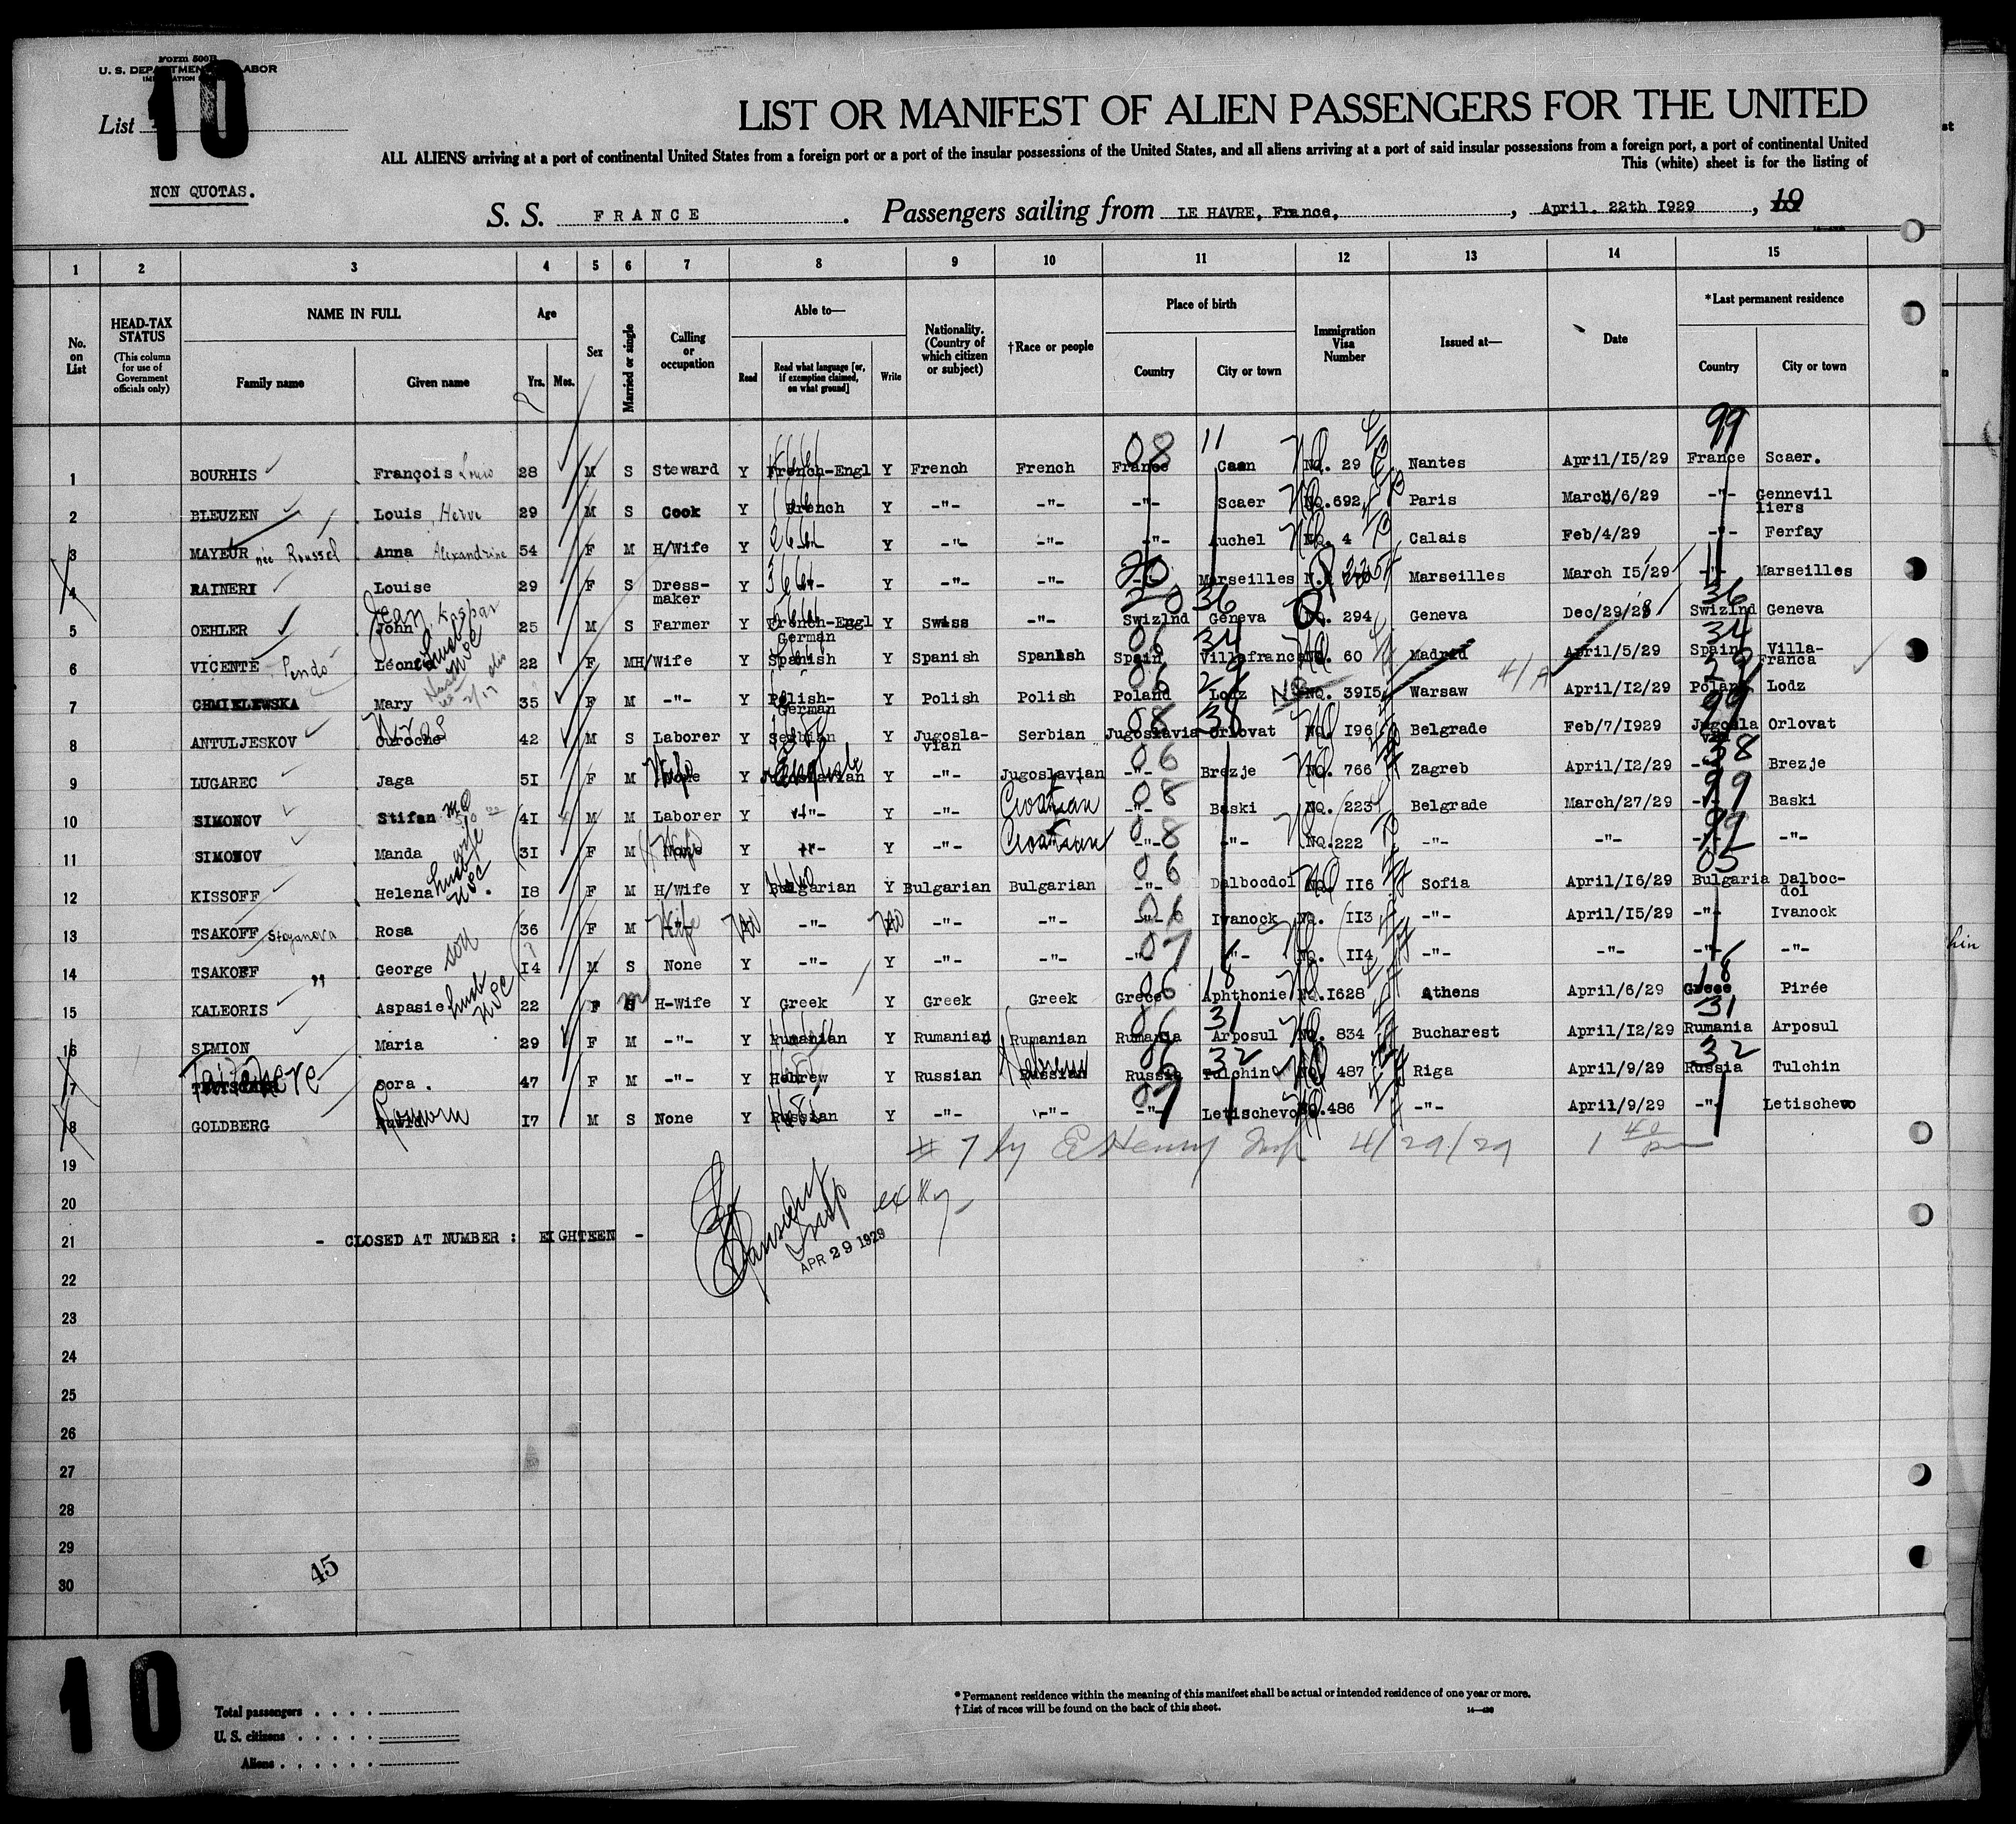 Form 500B
U. S. DEPARTMENT LABOR
List 10
NON QUOTAS.
LIST OR MANIFEST OF ALIEN PASSENGERS FOR THE UNITED
ALL ALIENS arriving at a port of continental United States from a foreign port or a port of the insular possessions of the United States, and all aliens arriving at a port of said insular possessions from a foreign port, a port of continental United
This (white) sheet is for the listing of
S. S. FRANCE . Passengers sailing from LE HAVRE, France, , April. 22th 1929 , 19
1 2 3 4 5 6 7 8 9 10 11 12 13 14 15
No. on List
HEAD-TAX STATUS (This column for use of Government officials only)
NAME IN FULL Family name Given name
Age Yrs. Mos.
Sex
Married or single
Calling or occupation
Able to— Read Read what language [or, if exemption claimed, on what ground] Write
Nationality. (Country of which citizen or subject)
†Race or people
Place of birth Country City or town
Immigration Visa Number
Issued at—
Date
*Last permanent residence Country City or town
99
08 11
1 BOURHIS François Louis 28 M S Steward Y French-Engl Y French French France Caen NO. 29 Nantes April/15/29 France Scaer.
2 BLEUZEN Louis Herve 29 M S Cook Y French Y -"- -"- -"- Scaer NO.692 Paris March/6/29 -"- Gennevilliers
3 MAYEUR née Roussel Anna Alexandrine 54 F M H/Wife Y -"- Y -"- -"- -"- Auchel NO. 4 Calais Feb/4/29 -"- Ferfay
4 RAINERI Louise 29 F S Dress-maker Y -"- Y -"- -"- -"- Marseilles Marseilles March 15/29 -"- Marseilles
5 OEHLER John Jean Kaspar 25 M S Farmer Y French-Engl German Y Swiss -"- Swizlnd Geneva NO. 294 Geneva Dec/29/28 Swizlnd Geneva
6 VICENTE Pendo 22 F M H/Wife Y Spanish Y Spanish Spanish Spain Villafranca NO. 60 Madrid April/5/29 Spain Villa-Franca
7 CHMIELEWSKA Mary 35 F M -"- Y Polish-German Y Polish Polish Poland Lodz NO. 3915 Warsaw April/12/29 Poland Lodz
8 ANTULJESKOV Ouroche Uros 42 M S Laborer Y Serbian Y Jugosla-vian Serbian Jugoslavia Orlovat NO. 196 Belgrade Feb/7/1929 Jugosla Orlovat
9 LUGAREC Jaga 51 F M None Wife Y Jugoslavian Y -"- Jugoslavian -"- Brezje NO. 766 Zagreb April/12/29 -"- Brezje
10 SIMONOV Stifan 41 M M Laborer Y -"- Y -"- Croatian -"- Baski NO. 223 Belgrade March/27/29 -"- Baski
11 SIMONOV Manda wife 31 F M Wife Y -"- Y -"- Croatian -"- -"- NO.222 -"- -"- -"- -"-
12 KISSOFF Helena husb USC 18 F M H/Wife Y Bulgarian Y Bulgarian Bulgarian -"- Dalbocdol NO. 116 Sofia April/16/29 Bulgaria Dalboc-dol
13 TSAKOFF Stoyanova Rosa 36 F M Wife No -"- No -"- -"- -"- Ivanock NO. 113 -"- April/15/29 -"- Ivanock
14 TSAKOFF " George son 14 M S None Y -"- Y -"- -"- -"- -"- NO. 114 -"- -"- -"- -"-
15 KALEORIS Aspasie husb USC 22 F M H-Wife Y Greek Y Greek Greek Grece Aphthonie NO.1628 Athens April/6/29 Grece Pirée
16 SIMION Maria 29 F M -"- Y Rumanian Y Rumanian Rumanian Rumania Arposul NO. 834 Bucharest April/12/29 Rumania Arposul
17 Sora. 47 F M -"- Y Hebrew Y Russian Hebrew Russia Tulchin NO 487 Riga April/9/29 Russia Tulchin
18 GOLDBERG 17 M S None Y Russian Y -"- -"- -"- Letischevo NO.486 -"- April/9/29 -"- Letischevo
19 # 7 by E Henry Insp 4/29/29 1 40 pm
20
21 - CLOSED AT NUMBER : EIGHTEEN -
APR 29 1929
22
23
24
25
26
27
28
29
30
45
10
Total passengers . . . .
U. S. citizens . . . . .
Aliens . . . . . .
* Permanent residence within the meaning of this manifest shall be actual or intended residence of one year or more.
† List of races will be found on the back of this sheet.